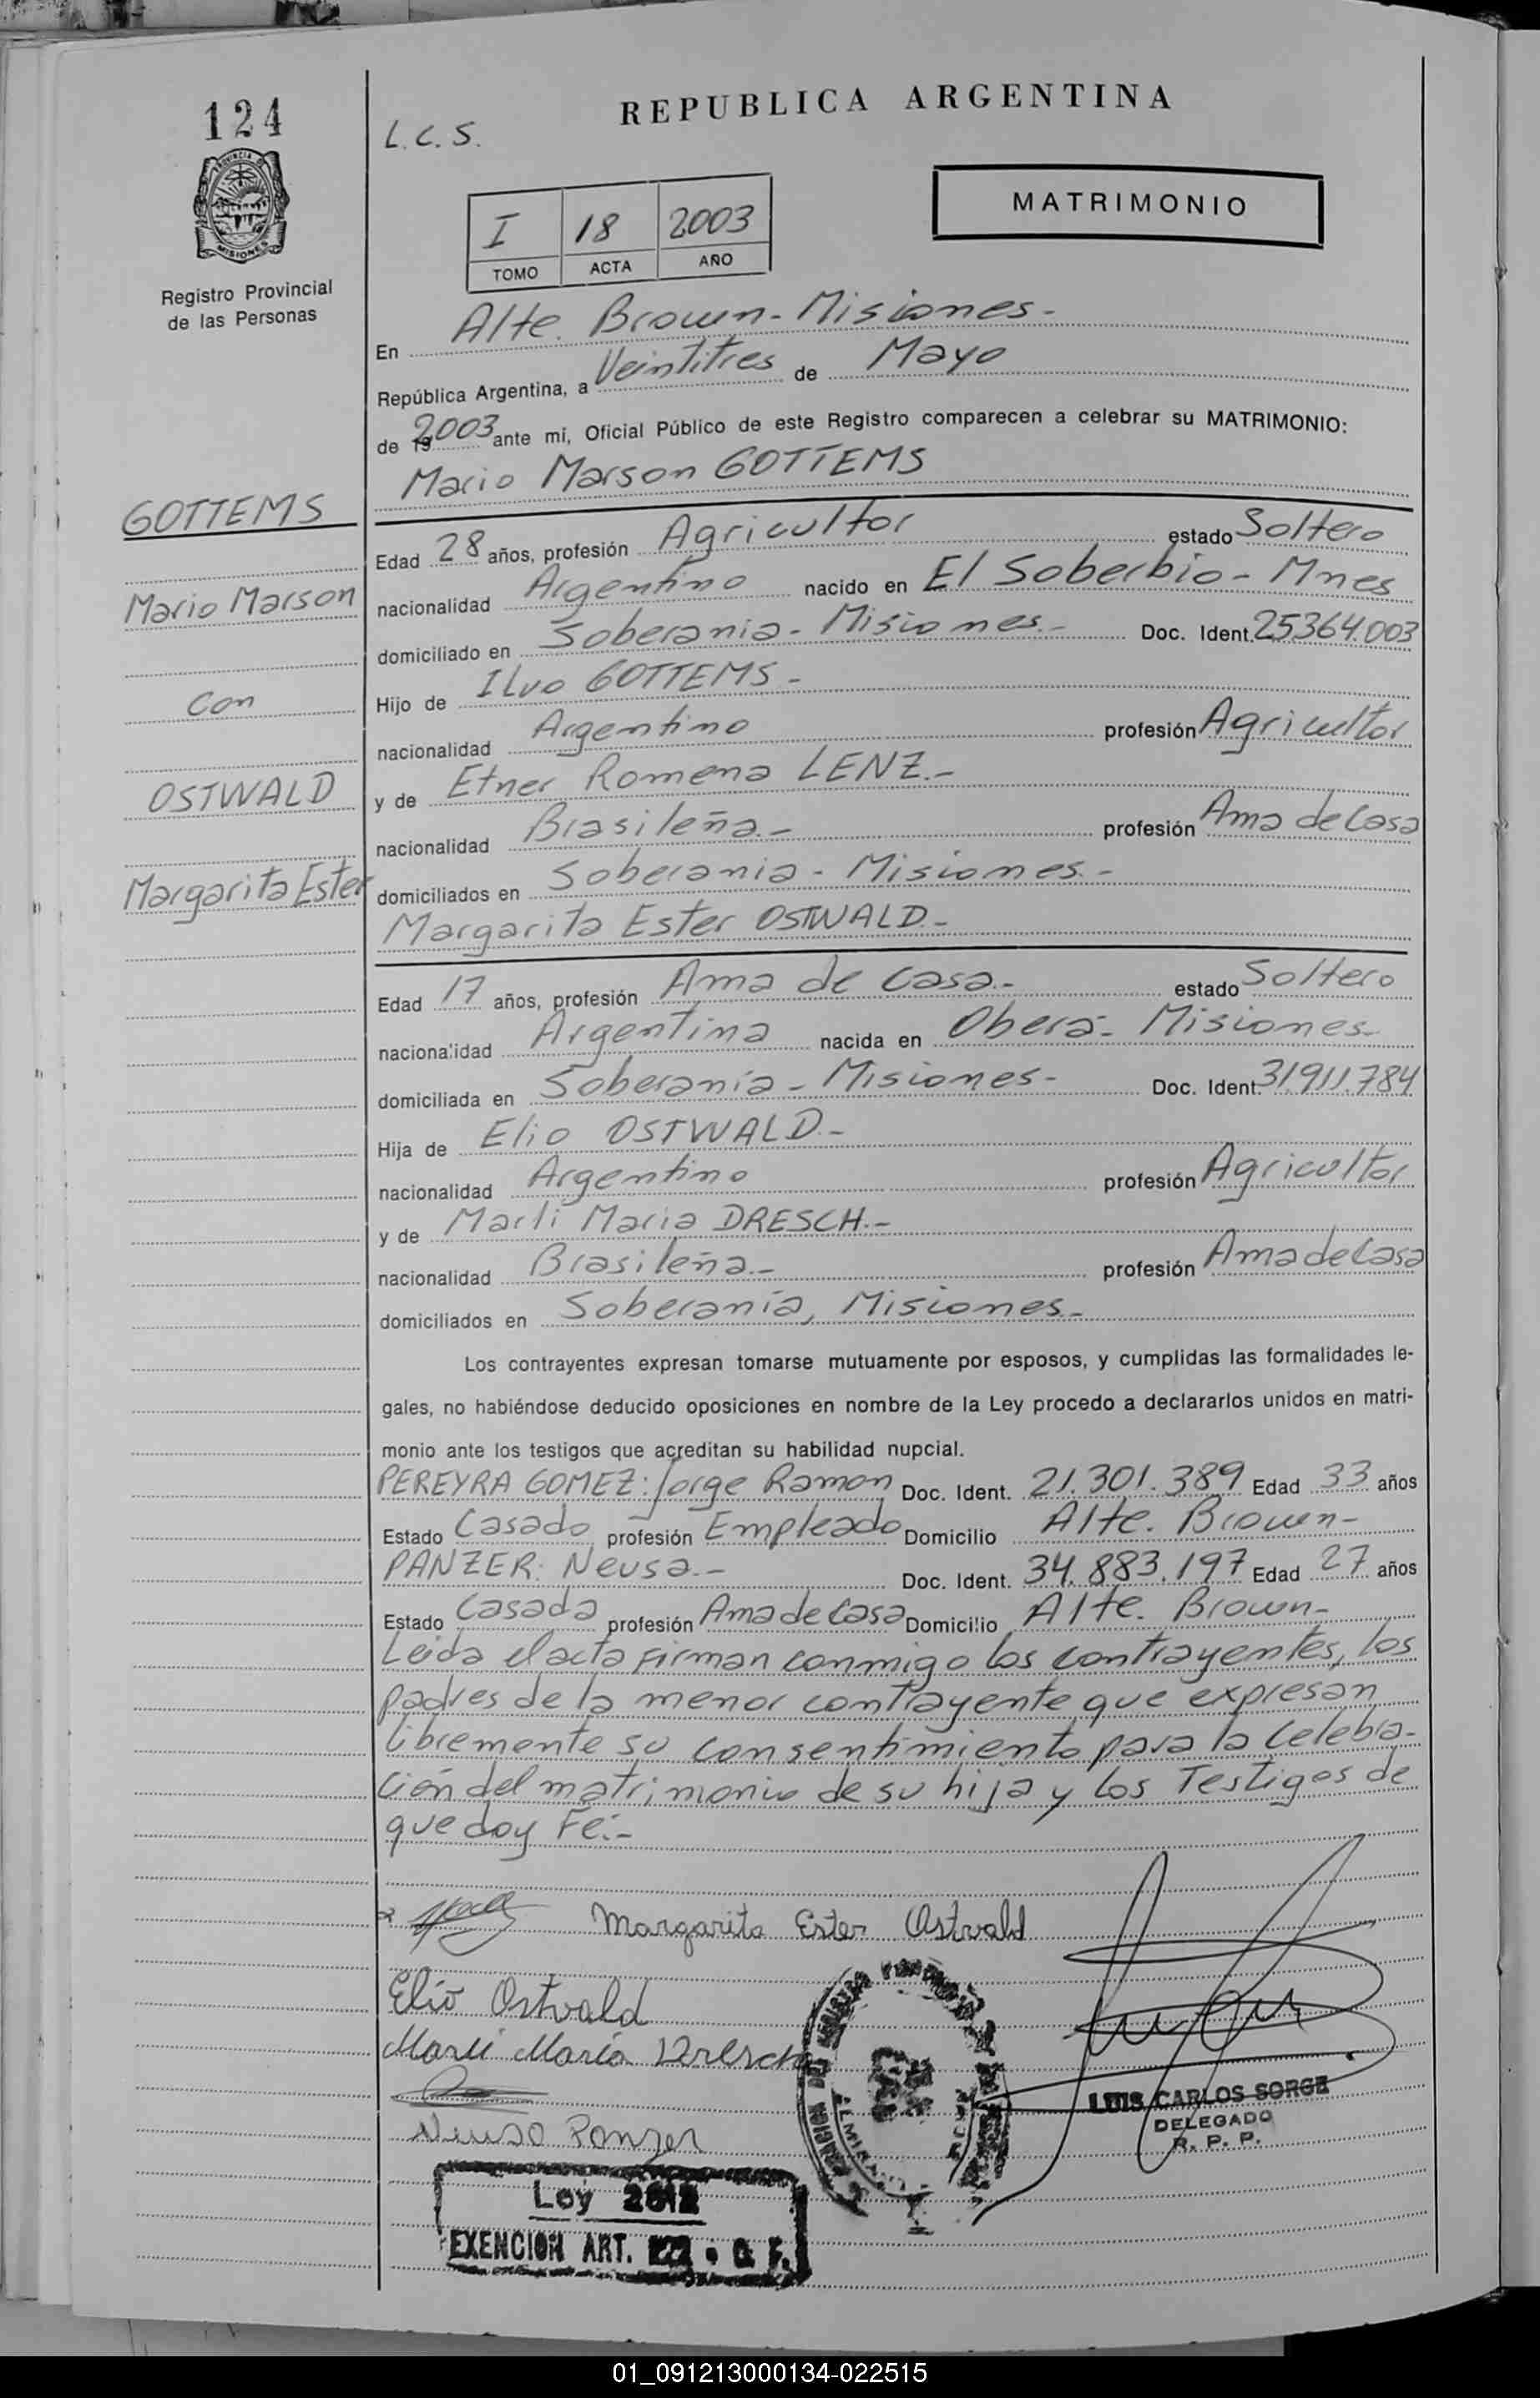 124
REPUBLICA ARGENTINA
L.C.S.
PROVINCIA DE
MISIONES
MATRIMONIO
I 18 2003
TOMO ACTA AÑO
Registro Provincial
de las Personas
En Alte. Brown - Misiones -
República Argentina, a Veintitres de Mayo
de 2003 ante mí, Oficial Público de este Registro comparecen a celebrar su MATRIMONIO:
Mario Marson GOTTEMS
GOTTEMS
Edad 28 años, profesión Agricultor estado Soltero
Mario Marson
nacionalidad Argentino nacido en El Soberbio - Mnes
domiciliado en Soberania - Misiones.- Doc. Ident. 25364.003
con
Hijo de Ilvo GOTTEMS -
nacionalidad Argentino profesión Agricultor
OSTWALD
y de Etner Romena LENZ.-
nacionalidad Brasileña.- profesión Ama de Casa
Margarita Ester
domiciliados en Soberania - Misiones.-
Margarita Ester OSTWALD.-
Edad 17 años, profesión Ama de Casa.- estado Soltero
nacionalidad Argentina nacida en Oberá - Misiones-
domiciliada en Soberanía - Misiones - Doc. Ident. 31.911.784
Hija de Elio OSTWALD.-
nacionalidad Argentino profesión Agricultor
y de Marli Maria DRESCH.-
nacionalidad Brasileña.- profesión Ama de Casa
domiciliados en Soberanía, Misiones-
Los contrayentes expresan tomarse mutuamente por esposos, y cumplidas las formalidades le-
gales, no habiéndose deducido oposiciones en nombre de la Ley procedo a declararlos unidos en matri-
monio ante los testigos que acreditan su habilidad nupcial.
PEREYRA GOMEZ: Jorge Ramon Doc. Ident. 21.301.389 Edad 33 años
Estado Casado profesión Empleado Domicilio Alte. Brown-
PANZER: Neusa.- Doc. Ident. 34.883.197 Edad 27 años
Estado Casada profesión Ama de Casa Domicilio Alte. Brown-
Leida el acta firman conmigo los contrayentes, los
padres de la menor contrayente que expresan
libremente su consentimiento para la celebra-
ción del matrimonio de su hija y los Testigos de
que doy Fé.-
Margarita Ester Ostvald
Elio Ostvald
Marli María Dresch
Neusa Panzer
LUIS CARLOS SORGE
DELEGADO
R. P. P.
Ley 2612
EXENCION ART. 222 • C F.
01_091213000134-022515